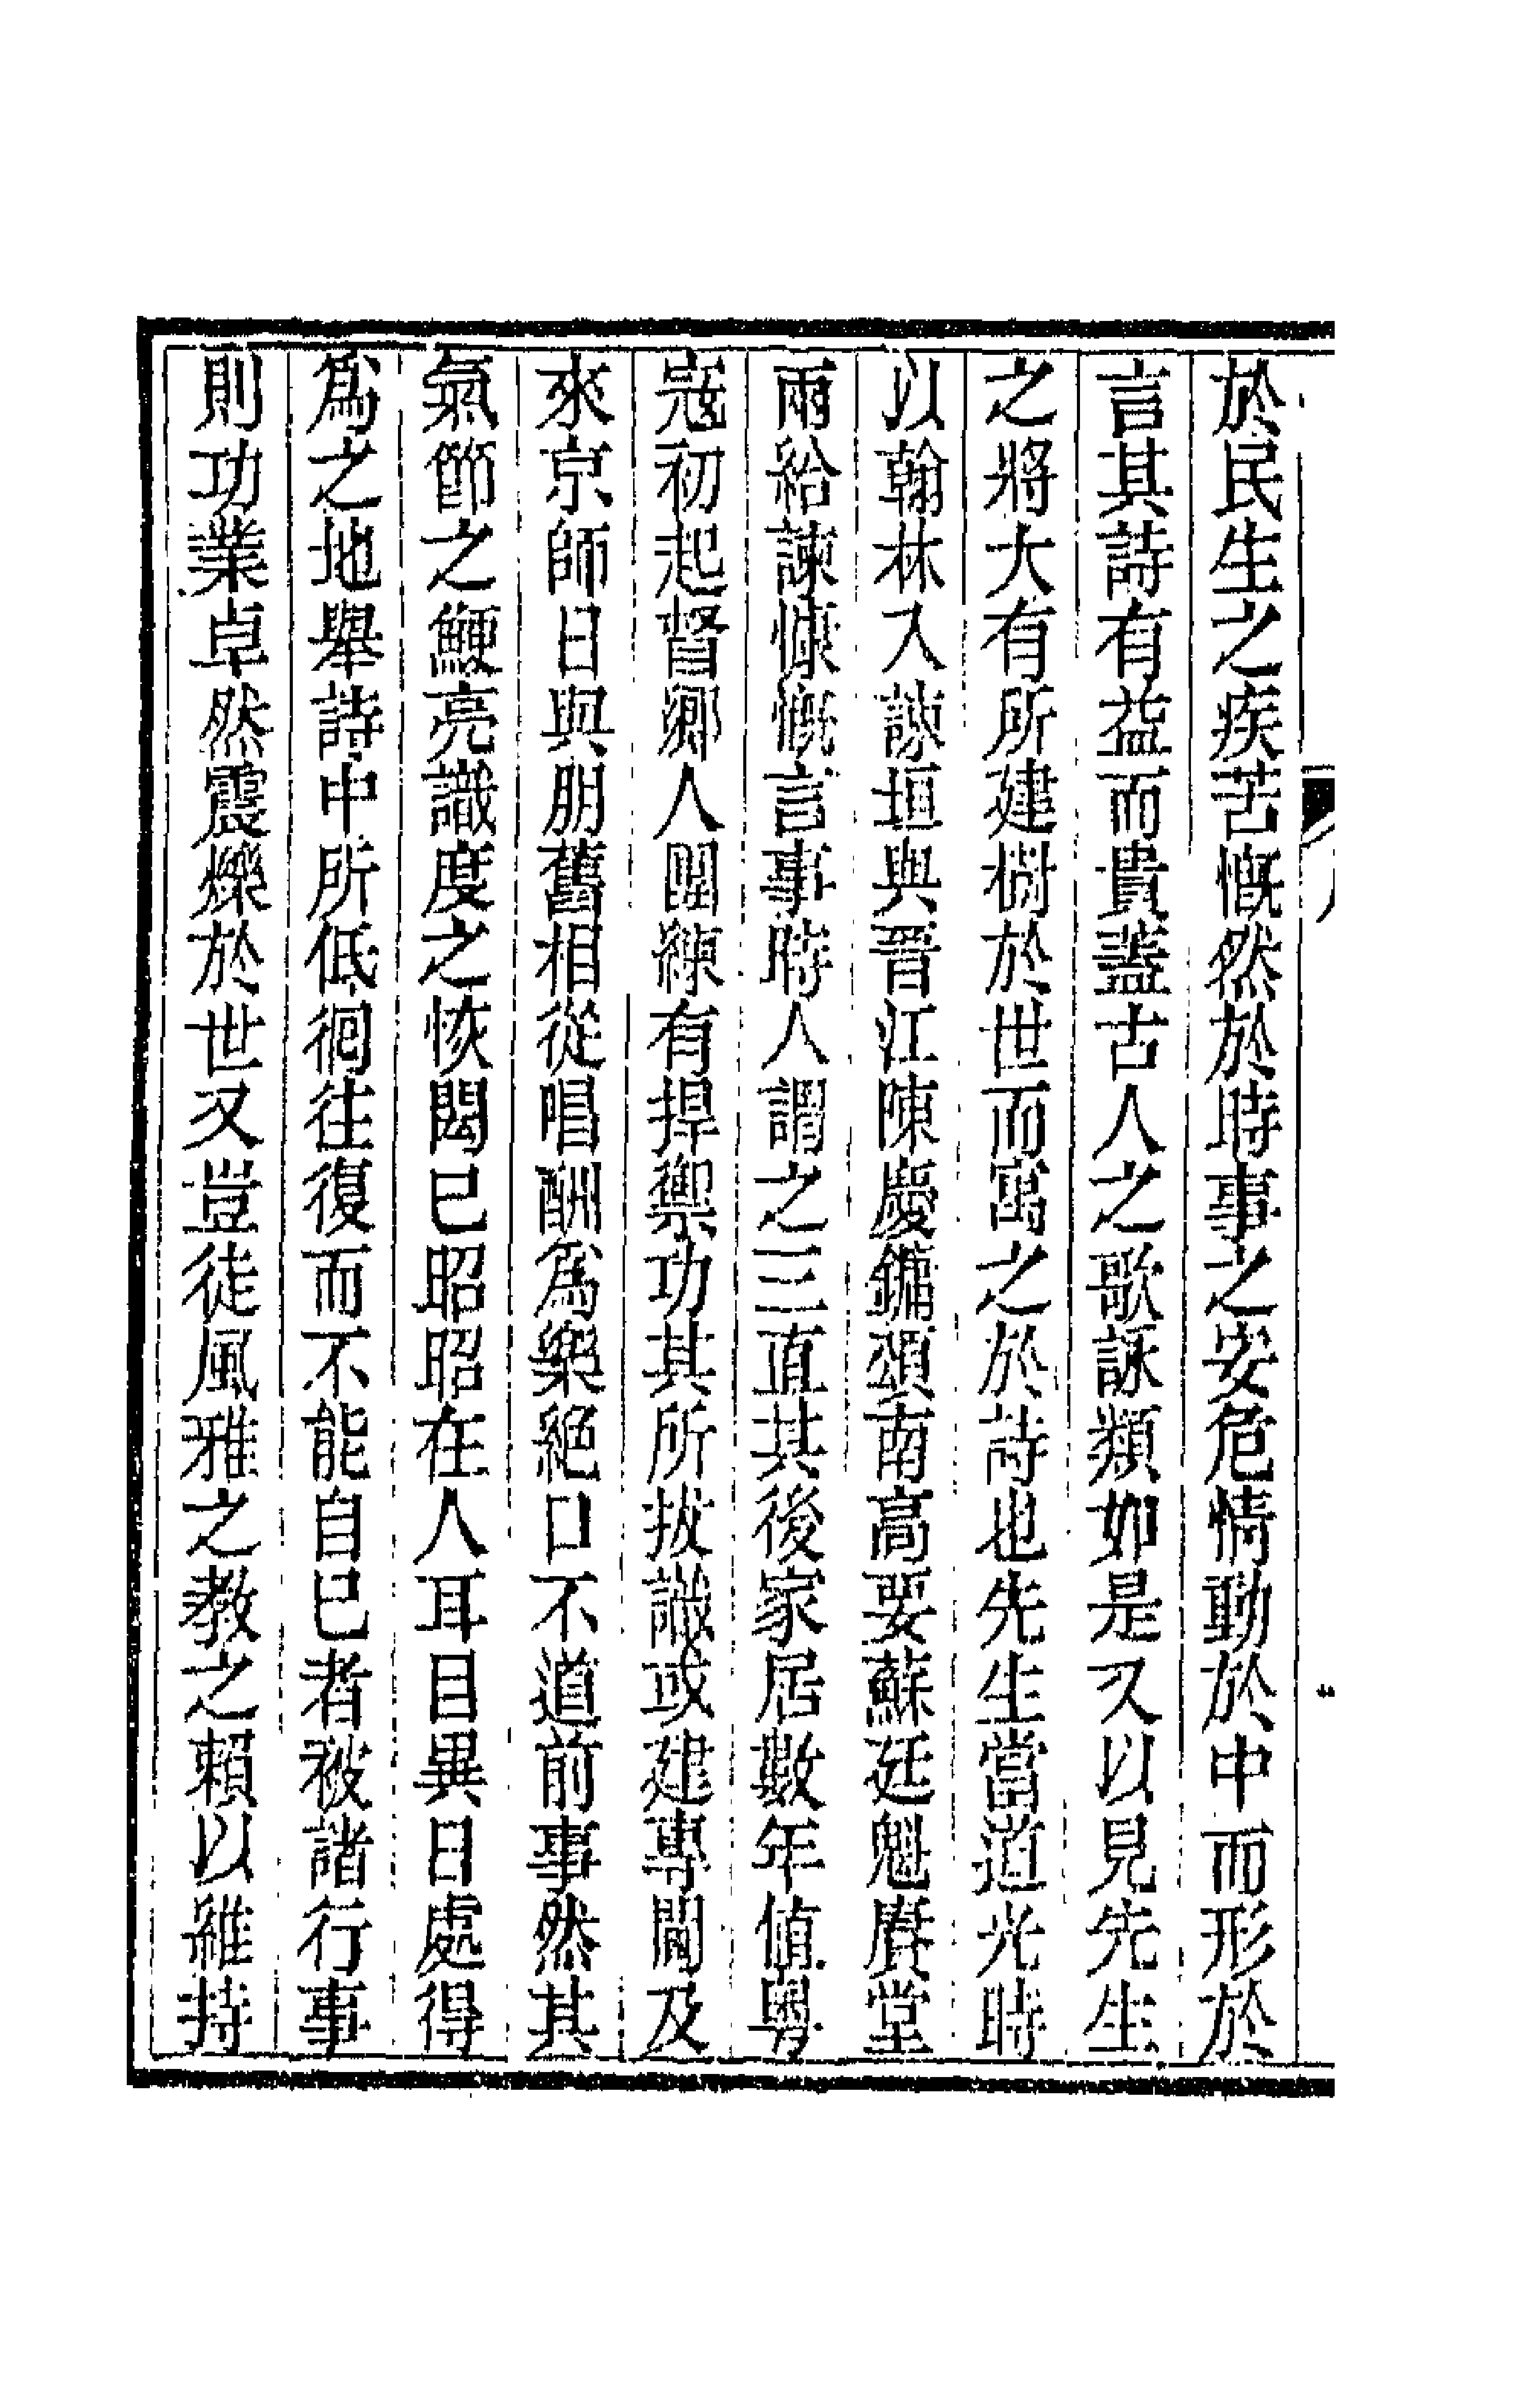 於民生之疾苦慨然於時事之安危情動於中而形於
言其詩有益而貴蓋古人之歌詠類如是又以見先生
之將大有所建樹於世而寓之於詩也先生當道光時
以翰林入諫垣與晋江陳慶鏞頌南高要蘇廷魁賡堂
兩給諫慷慨言事時人謂之三直其後家居數年值粤
寇初起督鄉人團練有捍禦功其所拔識或建專閫及
來京師日與朋舊相從唱酬爲樂絕口不道前事然其
氣節之鯁亮識度之恢閎已昭昭在人耳目異日處得
爲之地舉詩中所低徊往復而不能自已者被諸行事
則功業卓然震爍於世又豈徒風雅之教之賴以維持